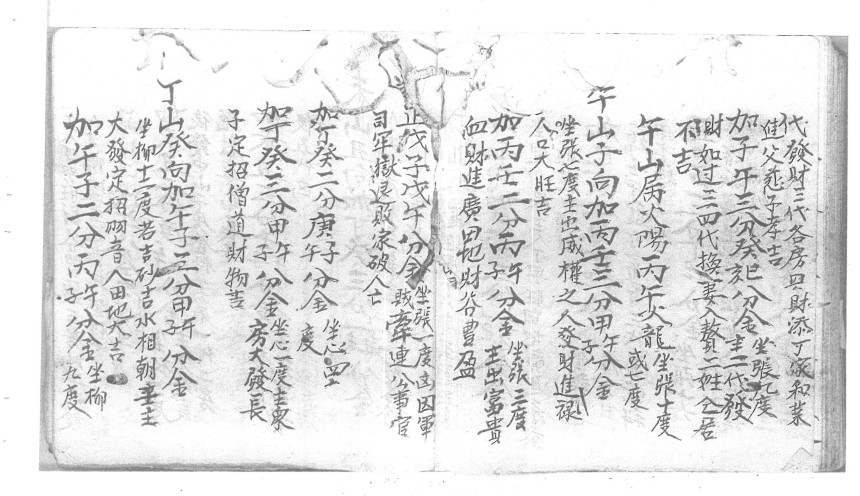 代發財三代各房興財添丁家和業
佳父慈子孝吉
加子午三分癸巳分金坐張九度主二代發
財如过三四代換妻入贅二姓仝居
不吉
午山屬火陽丙午火龍坐張十度或七度
午山子向加丙壬三分甲午子分金
坐張六度主出威權之人發財進祿
人口大旺吉
加丙壬二分丙午子分金坐張三度主出富貴
血財進廣田地財谷豊盈
正戊子戊午分金坐張一度凶因軍賊牽連公事官
司牢獄退敗家破人亡
加丁癸二分庚子午分金坐心四度
加丁癸三分甲午子分金坐心一度主衆房大發長
子定招僧道財物吉
丁山癸向加午子三分甲午子分金
坐柳十二度若吉砂吉水相朝主
大發定招羽音人田地大吉
加午子二分丙午子分金坐柳九度